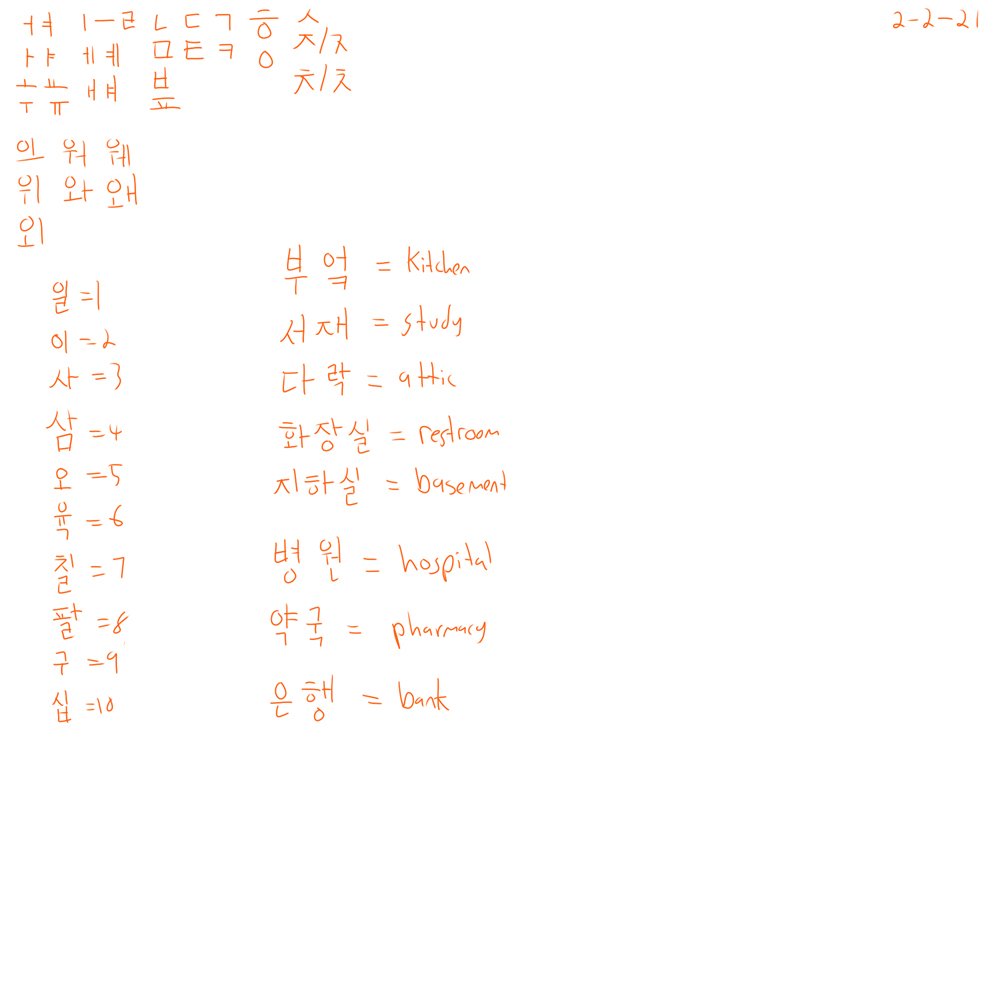 ㅓㅕ ㅣㅡㄹ ㄴㄷㄱㅎㅅ 2-2-21
ㅏㅑ ㅔㅖ ㅁㅌㅋㅇㅈ/ㅈ
ㅗㅛ ㅐㅒ ㅂ ㅊ/ㅊ
ㅜㅠ ㅍ
의 워 웨
위 와 왜
외
부엌 = Kitchen
일=1
서재 = study
이=2
다락 = attic
사=3
화장실 = restroom
삼=4
지하실 = basement
오=5
육=6
병원 = hospital
칠=7
약국 = pharmacy
팔=8
구=9
은행 = bank
십=10